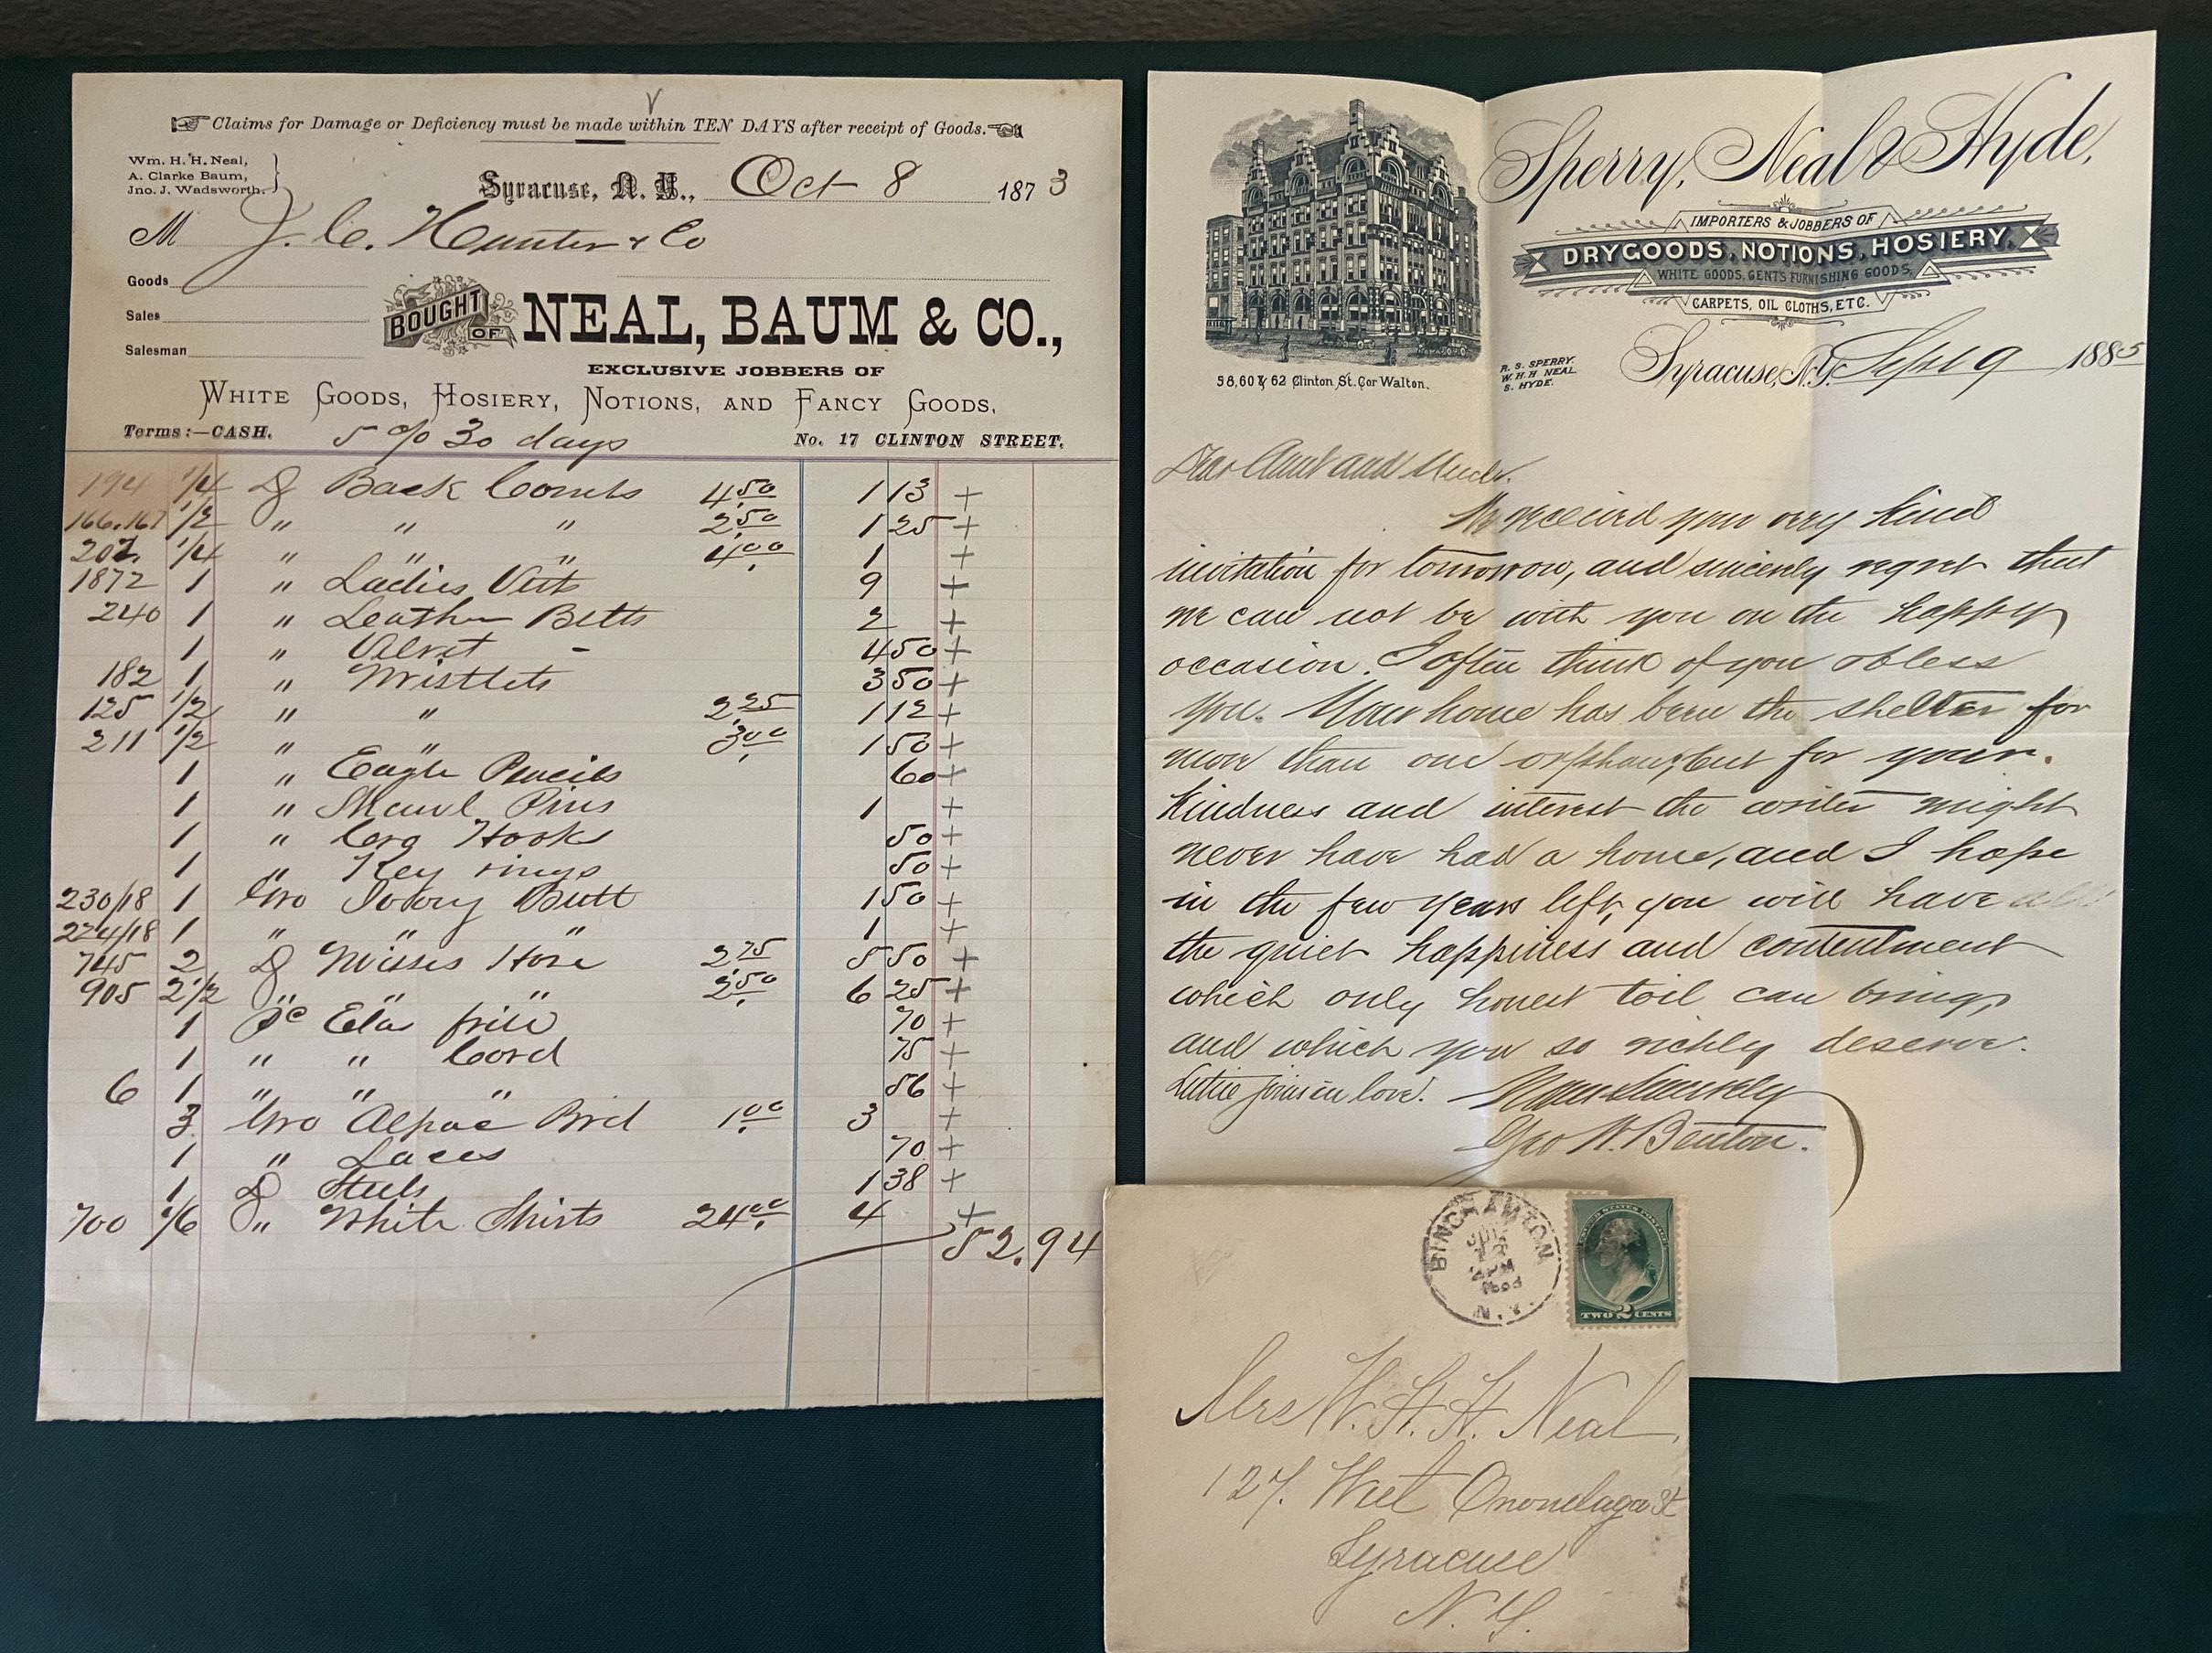 Claims for Damage or Deficiency must be made within TEN DAYS after receipt of Goods.
Wm. H. H. Neal,
A. Clarke Baum,
Jno. J. Wadsworth.
Syracuse, N. Y., Oct 8 1873
M J. C. Hunter & Co
Goods
Sales
Salesman
BOUGHT OF NEAL, BAUM & CO.,
EXCLUSIVE JOBBERS OF
WHITE GOODS, HOSIERY, NOTIONS, AND FANCY GOODS,
Terms:—CASH. 5 % 30 days No. 17 CLINTON STREET.
194 1/4 D Back Combs 4.50 1 13 +
166.167 1/2 " " " 2.50 1 25 +
202. 1/4 " " " 4.00 1 +
1872 1 " Ladies 9 +
240 1 " Leather Belts 2 +
1 " Velvet - 4 50 +
182 1 " Wristlets 3 50 +
125 1/2 " " 2.25 1 12 +
211 1/2 " " 3.00 1 50 +
1 " Eagle Pencils 60 +
1 " Shawl Pins 1 +
1 " Hooks 50 +
1 " Key rings 50 +
230/18 1 Gro Ivory Butt 1 50 +
224/18 1 " " " 1 +
745 2 D Misses Hose 2.75 5 50 +
905 2 1/2 " " " 2.50 6 25 +
1 Pc Elas frill 70 +
1 " " Cord 75 +
6 1 " " " 56 +
3 Gro Alpac Brd 1.00 3 +
1 " Laces 70 +
1 D Steels 1 38 +
700 1/6 " White Shirts 24.00 4 +
52.94
Sperry, Neal & Hyde,
IMPORTERS & JOBBERS OF
DRY GOODS, NOTIONS, HOSIERY,
WHITE GOODS, GENTS FURNISHING GOODS,
CARPETS, OIL CLOTHS, ETC.
58, 60 & 62 Clinton St. Cor Walton.
R. S. SPERRY.
W. H. H NEAL
S. HYDE.
Syracuse, N.Y. Sept 9 1885
Dear Aunt and Uncle.
We received your very kind
invitation for tomorrow, and sincerely regret that
we can not be with you on the happy
occasion. I often think of you & bless
you. Your home has been the shelter for
more than one orphan, but for your
kindness and interest the writer might
never have had a home, and I hope
in the few years left, you will have all
the quiet happiness and contentment
which only honest toil can bring,
and which you so richly deserve.
Lutie joins in love. Yours Sincerely
Geo N. Benton.
BINGHAMTON
N. Y.
UNITED STATES POSTAGE
TWO 2 CENTS
Mrs W. H. H. Neal,
127. West Onondaga St
Syracuse
N. Y.